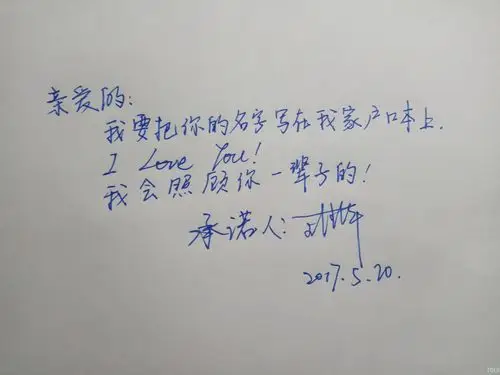 亲爱的:
我要把你的名字写在我家户口本上.
I Love You!
我会照顾你一辈子的!
承诺人:
2017.5.20.